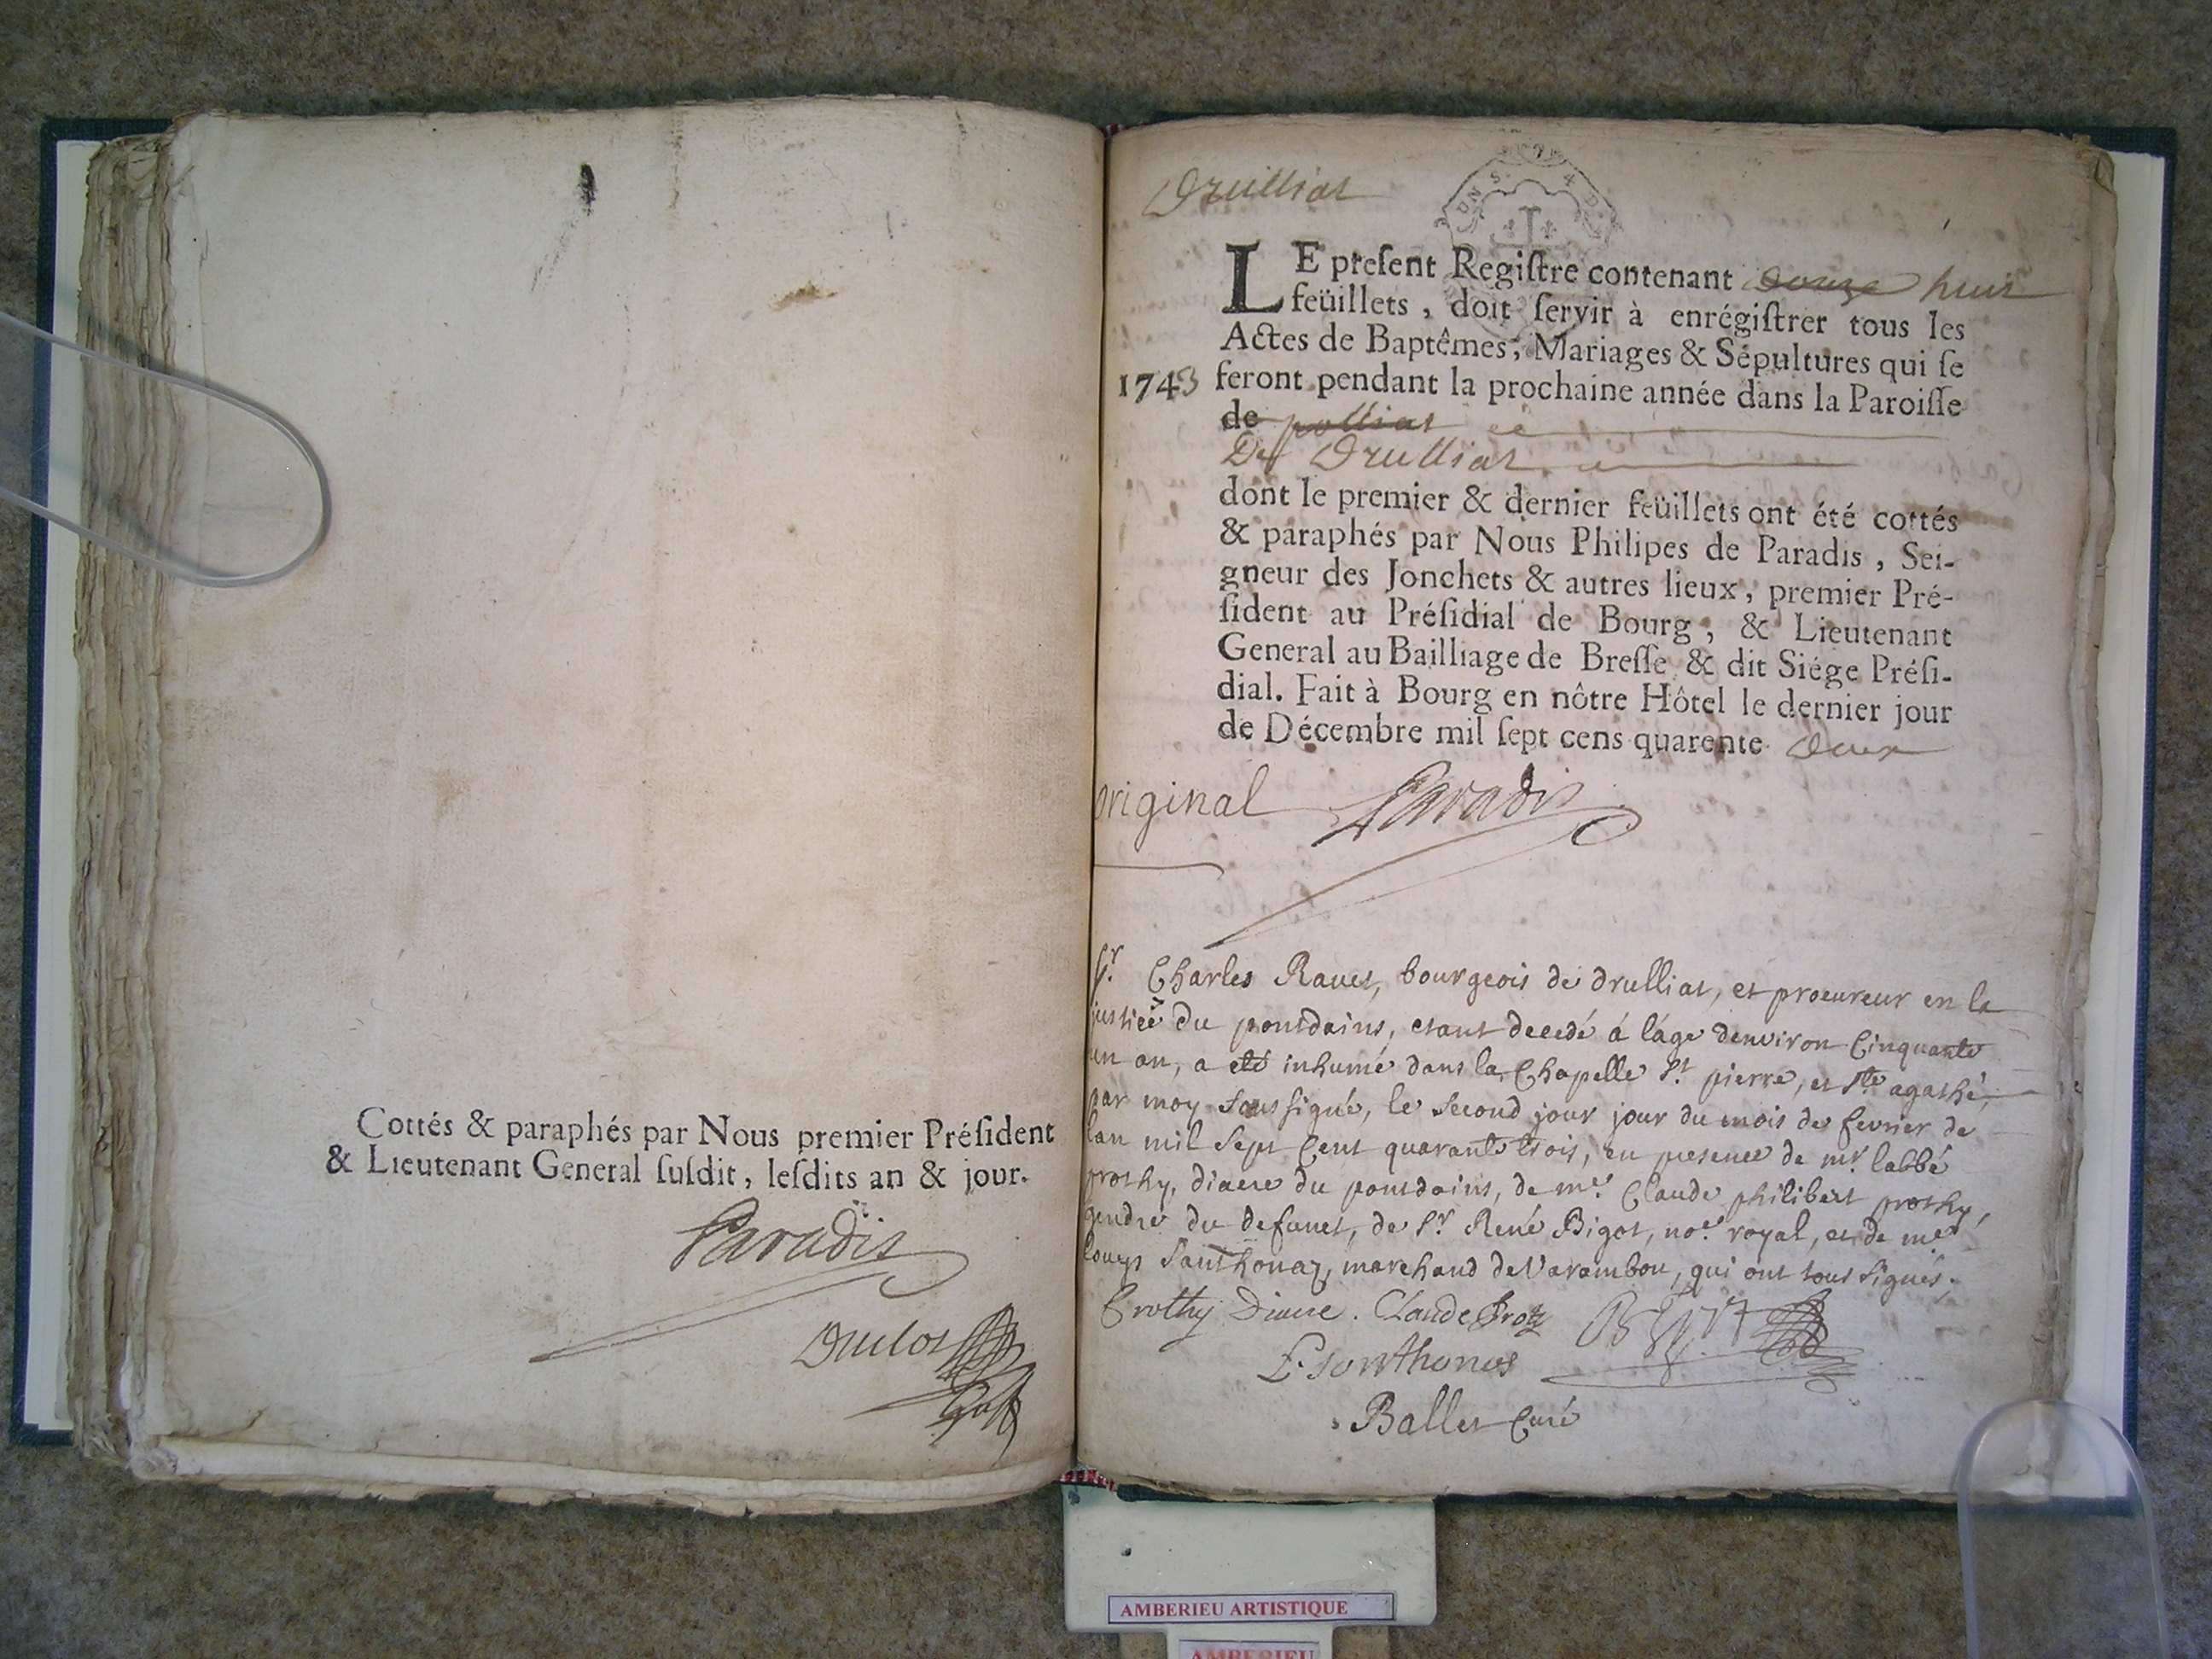 Cottés & paraphés par Nous premier Préſident
& Lieutenant General ſuſdit, leſdits an & jour.
Paradis
Duclos
Drulliat
LE preſent Regiſtre contenant douze huit
feüillets, doit ſervir à enrégiſtrer tous les
Actes de Baptêmes, Mariages & Sépultures qui ſe
1743 feront pendant la prochaine année dans la Paroiſſe
de polliat
De Drulliat
dont le premier & dernier feüillets ont été cottés
& paraphés par Nous Philipes de Paradis, Sei-
gneur des Jonchets & autres lieux, premier Pré-
ſident au Préſidial de Bourg, & Lieutenant
General au Bailliage de Breſſe & dit Siége Préſi-
dial. Fait à Bourg en nôtre Hôtel le dernier jour
de Décembre mil ſept cens quarente deux
original Paradis
Sr. Charles Ravet, bourgeois de drulliat, et procureur en la
justice du pontdains, etant decedé á láge denviron Cinquante
un an, a eté inhumé dans la Chapelle St pierre, et Ste agathe,
par moy soussigné, le second jour jour du mois de fevrier de
lan mil sept Cent quarante trois, en presence de mr. labbé
prothy, diacre du pontdains, de me. Claude philibert prothy,
gendre du defunct, de Sr René Bigot, noe. royal, et de me
Louys Santhonaz, marchand de Varambon, qui ont tous signés,
Prothy Diacre. Claude Proty
L. Santhonas
Ballet Curé
AMBERIEU ARTISTIQUE
AMBERIEU